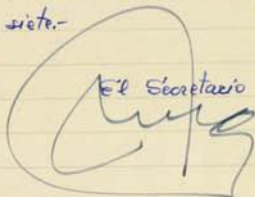 siete.-
El Secretario